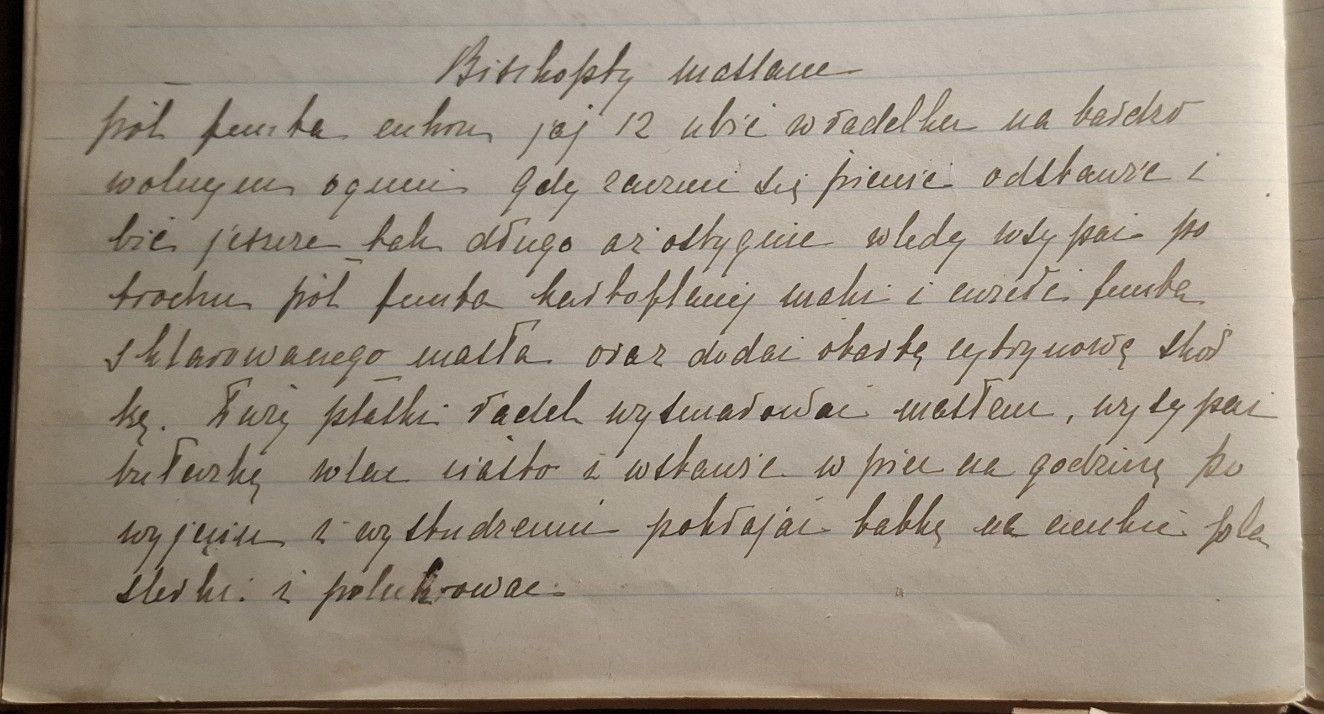 Bischopty maslane
pół funta cukru jaj 12 ubić w rądelku na bardzo
wolnym ogniu Gdy zacznie się pienić odstawić i
bić jeszcze tak długo aż ostygnie wtedy wsypać po
trochu pół funta kartoflanej mąki i ćwierć funta
sklarowanego masła oraz dodać otartą cytrynową skór
kę. Duży płatki rądel wysmarować masłem, wysypać
bułeczką wlać ciasto i wstawić w piec na godzinę po
wyjęciu i wystudzeniu pokrajać babkę na cienkie pla
sterki i polukrować